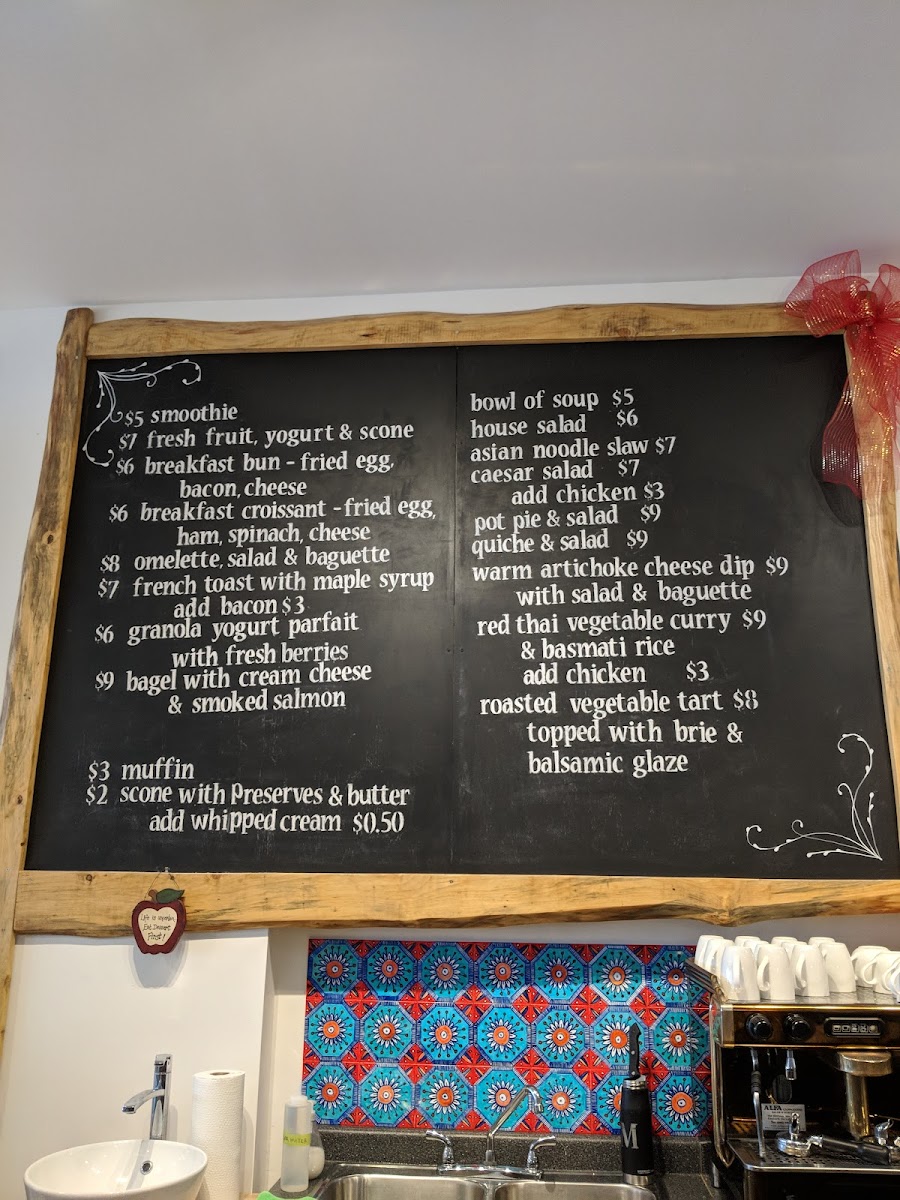 $5 smoothie
$7 fresh fruit, yogurt & scone
$6 breakfast bun - fried egg,
bacon, cheese
$6 breakfast croissant - fried egg,
ham, spinach, cheese
$8 omelette, salad & baguette
$7 french toast with maple syrup
add bacon $3
$6 granola yogurt parfait
with fresh berries
$9 bagel with cream cheese
& smoked salmon
$3 muffin
$2 scone with preserves & butter
add whipped cream $0.50
bowl of soup $5
house salad $6
asian noodle slaw $7
caesar salad $7
add chicken $3
pot pie & salad $9
quiche & salad $9
warm artichoke cheese dip $9
with salad & baguette
red thai vegetable curry $9
& basmati rice
add chicken $3
roasted vegetable tart $8
topped with brie &
balsamic glaze
Life is uncertain
Eat Dessert
First!
WATER
M
ALFA